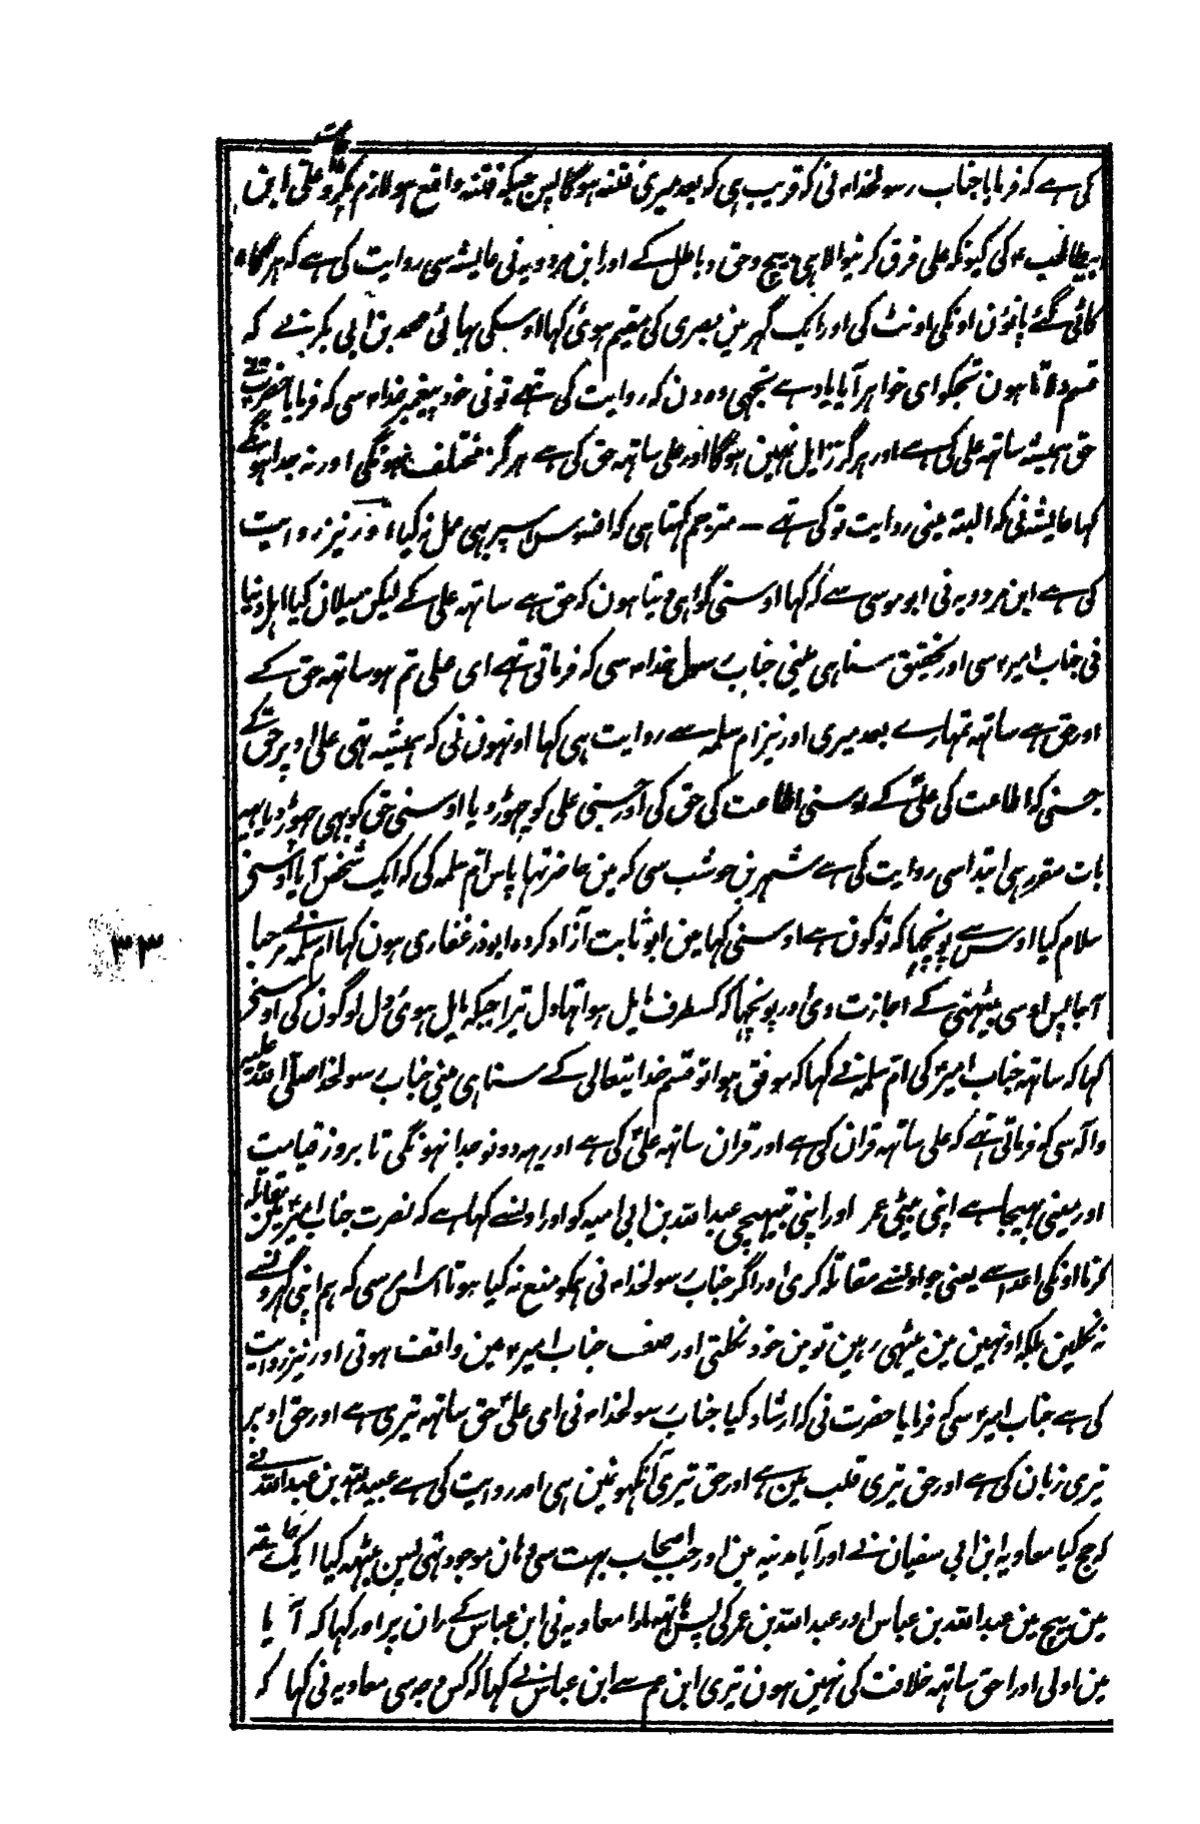 کی ہے کہ فرمایا جناب رسولخداء نی کہ قریب ہی کہ بعد میری فتنہ ہوگا پس جبکہ فتنہ واقع ہو لازم پکڑو علی ابن
ابیطالب ء کی کیونکہ علی فرق کرنیوالا ہی بیچ حق و باطل کے اور ابن مردویہ نی عایشہ سی روایت کی ہے کہ ہرگاہ
کاٹی گئے پانوُن اونکی اونٹ کی اور ایک گہر مین بصری کی مقیم ہوئی کہا اوسکی بہائی محمد بن ابی بکر نے کہ
قسم دلاتا ہون تجکو ای خواہر آیا یاد ہے تجہی وہ دن کہ روایت کی تہے تونی خود پیغمبر خداء سی کہ فرمایا حضرت نے
حق ہمیشہ ساتہہ علی کی ہے اور ہرگز زایل نہین ہوگا اور علی ساتہہ حق کی ہے ہرگز مختلف نہونگی اور نہ جدا ہونگے
کہا عایشہ نی کہ البتہ مینی روایت تو کی تہے - مترجم کہتا ہی کہ افسوس سپر بہی عمل نہ کیا اور نیز روایت
کی ہے ابن مردویہ نی ابو موسی سے کہ کہا اوسنی گواہی دیتا ہون کہ حق ہے ساتہہ علی کے لیکن میلان کیا اہل دنیا
نی جناب امیرء سی اور تحقیق سنا ہی مینی جناب رسول خداء سی کہ فرماتی تہے ای علی تم ہو ساتہہ حق کے
اور حق ہے ساتہہ تمہارے بعد میری اور نیز ام سلمہ سے روایت ہی کہا اونہون نی کہ ہمیشہ تہی علی اوپر حق کے
جسنی کہ اطاعت کی علیؑ کے اوسنی اطاعت کی حق کی اور جسنی علی کو چہوڑ دیا اوسنی حق کو بہی چہوڑ دیا یہہ
بات مقرر ہی ابتدا سی روایت کی ہے شہر بن حوشب سی کہ مین حاضر تہا پاس ام سلمہ کی کہ ایک شخص آیا اوسنی
سلام کیا اوس سے پونچہا کہ تو کون ہے اوسنی کہا مین ابو ثابت آزاد کردہ ابوذر غفاری ہون کہا ام سلمہ نے مرحبا
آجا پس اوسی بیٹہنی کے اجازت دی اور پونچہا کہ کسطرف مایل ہوا تہا دل تیرا جبکہ مایل ہوئی دل لوگون کی اوسنی
کہا کہ ساتہہ جناب امیرء کی ام سلمہ نے کہا کہ موفق ہوا تو قسم خدایتعالی کے سنا ہی مینی جناب رسولخدا صلی اللہ علیہ
وآلہ سی کہ فرماتی تہے کہ علی ساتہہ قران کی ہے اور قران ساتہہ علیؑ کی ہے اور یہہ دونو جدا نہونگی تا بروز قیامت
اور مینی بہیجا ہے اپنی بیٹی عمر اور اپنی بہتیجی عبد اللہ بن ابی امیہ کو اور اونسے کہا ہے کہ نصرت جناب امیرء مین مقاتلہ
کرنا اونکی اعدا سے یعنی جو اونسے مقاتلہ کری اور اگر جناب رسولخداء نی ہمکو منع نہ کیا ہوتا اس امر سی کہ ہم اپنی گہرون سے
نہ نکلین بلکہ اونہین مین بیٹہی رہین تو مین خود نکلتی اور صف جناب امیرء مین واقف ہوتی اور نیز روایت
کی ہے جناب امیرء سی کہ فرمایا حضرت نی کہ ارشاد کیا جناب رسولخداء نی ای علیؑ حق ساتہہ تیری ہے اور حق اوپر
تیری زبان کی ہے اور حق تیری قلب مین ہے اور حق تیری آنکہونمین ہی اور روایت کی ہے عبید اللہ بن عبداللہ نے
کہ حج کیا معاویہ ابن ابی سفیان نے اور آیا مدینہ مین اور جب اصحاب بہت سی وہان موجود تہی پس بیٹہہ گیا ایک حلقہ
مین بیچ مین عبد اللہ بن عباس اور عبد اللہ بن عمر کی پس ہاتہہ مارا معاویہ نی ابن عباس کے ران پر اور کہا کہ آیا
مین اولی اور احق ساتہہ خلافت کی نہین ہون تیری ابن عم سے ابن عباس نے کہا کہ کس وجہ سی معاویہ نی کہا کہ
۳۳